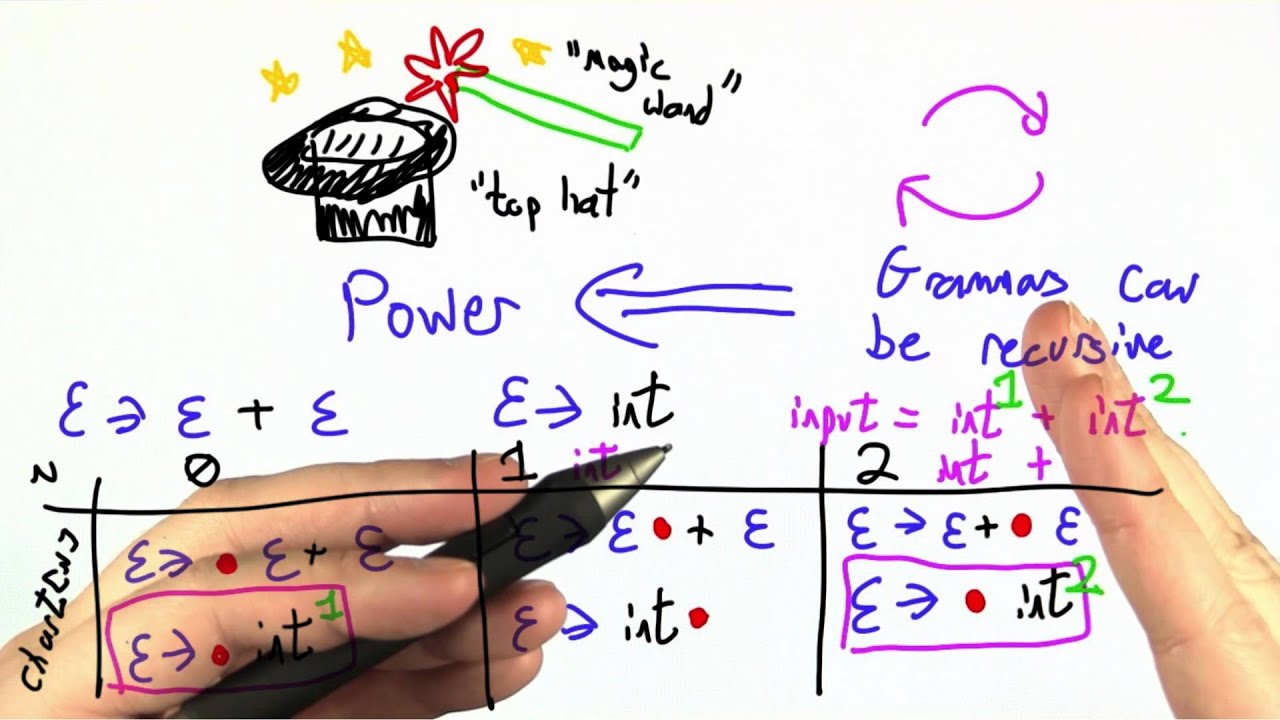 "Magic
wand"
"top hat"
Power
Grammars can
be recursive
Ɛ → Ɛ + Ɛ
Ɛ → int
input = int¹ + int²
N 0 1 int 2 int +
chart[N]
Ɛ → • Ɛ + Ɛ
Ɛ → • int¹
Ɛ → Ɛ • + Ɛ
Ɛ → int •
Ɛ → Ɛ + • Ɛ
Ɛ → • int²